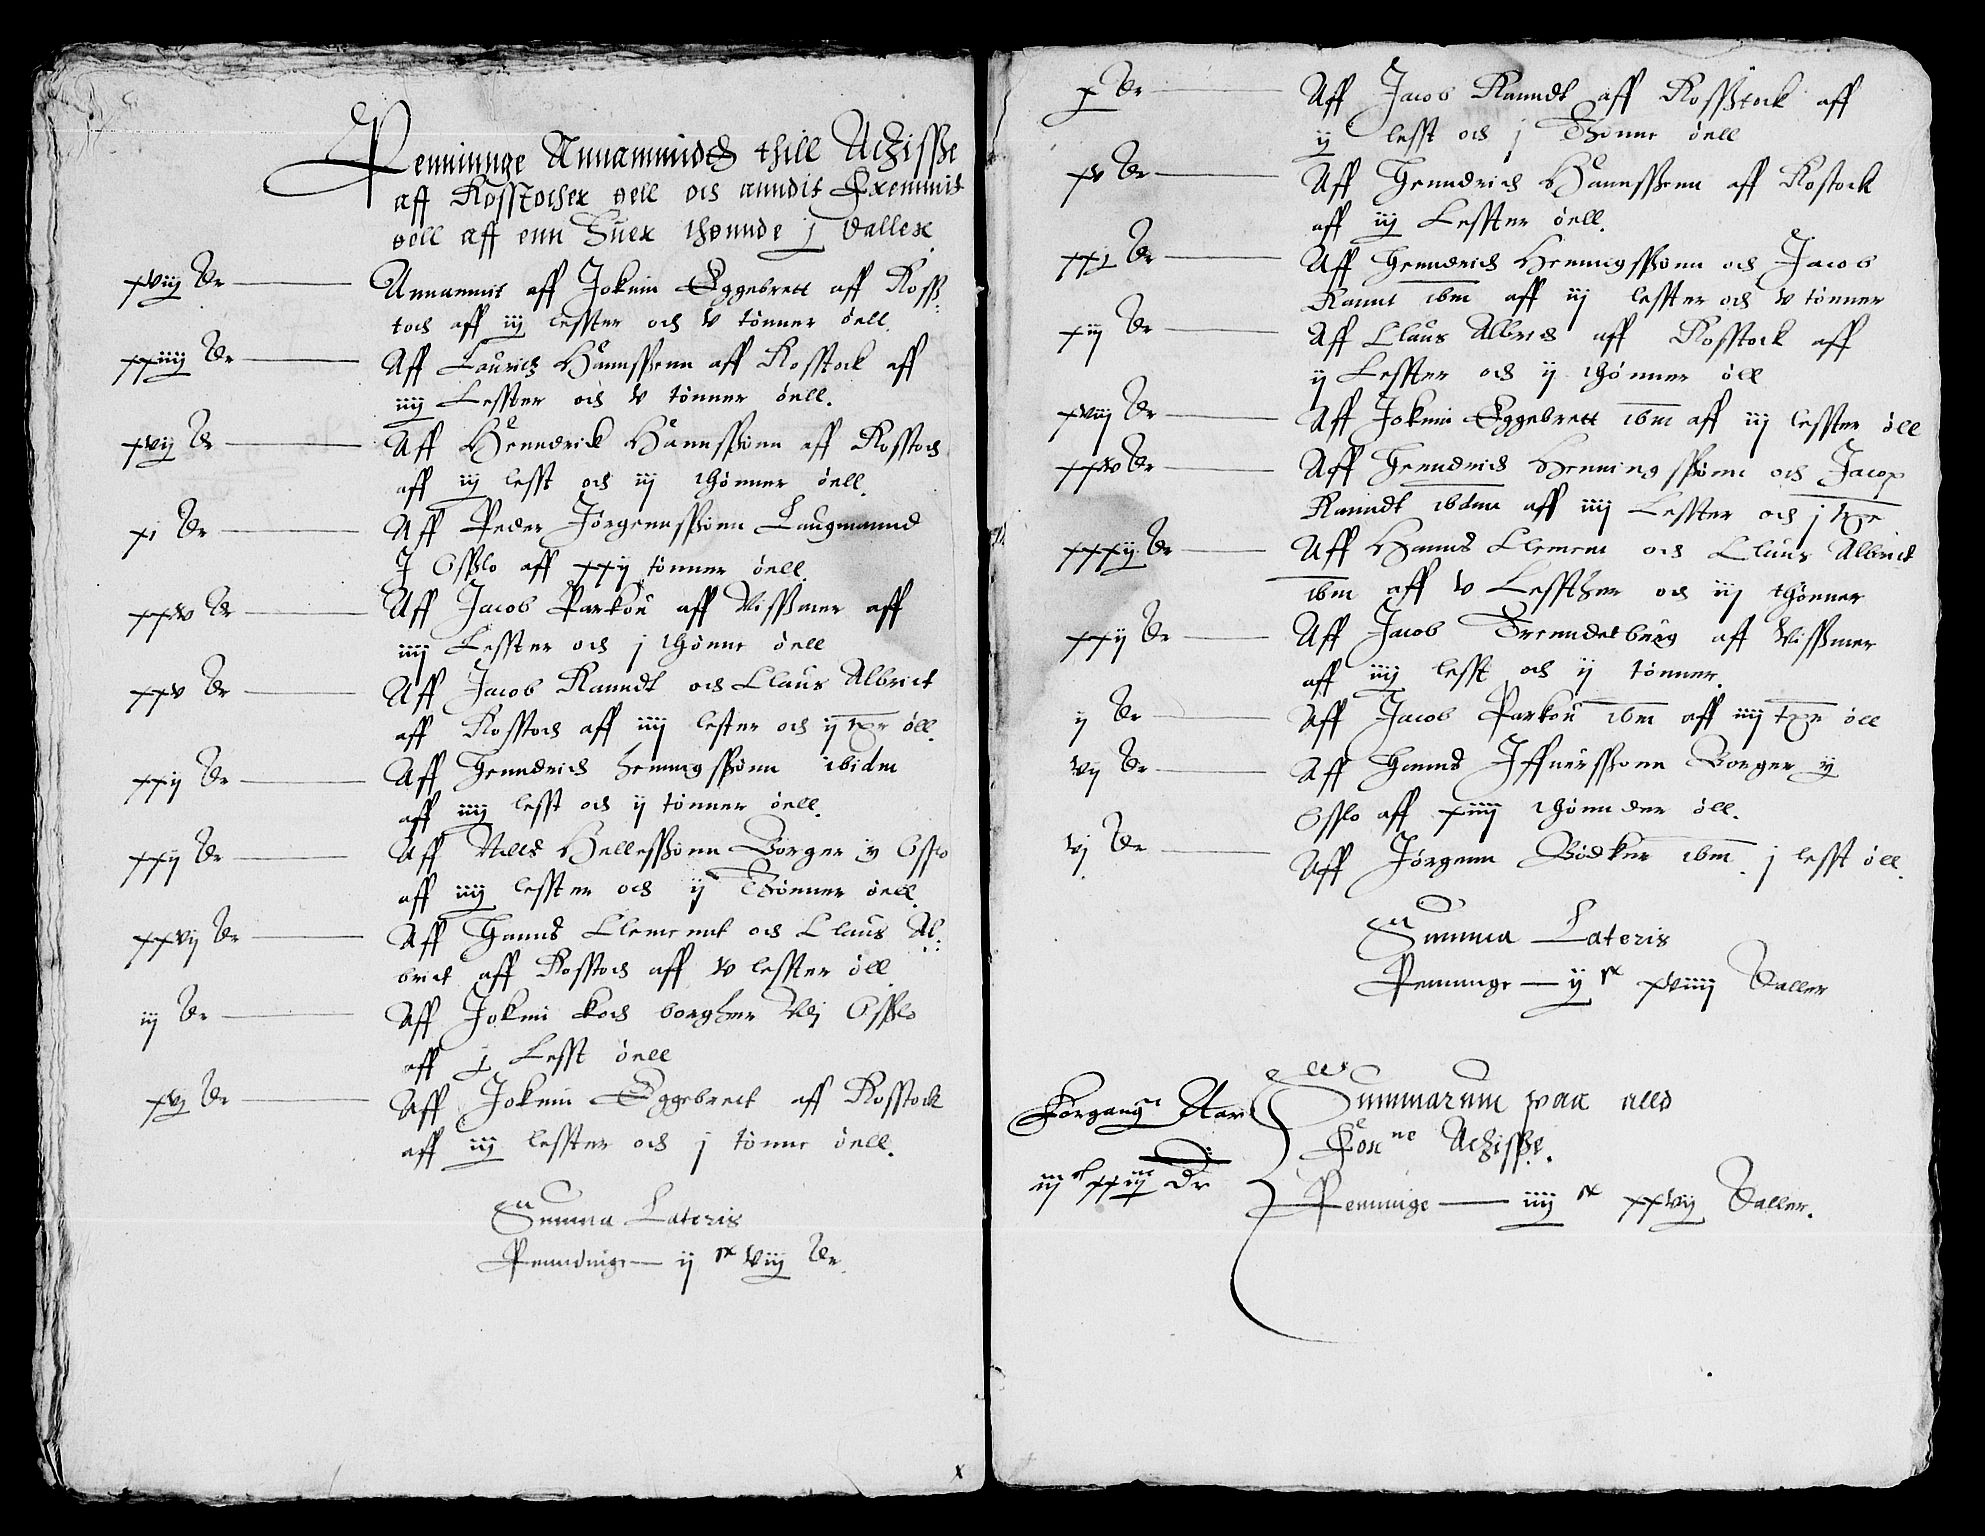 Penninnge Annammidt thill Achzisse
aff Rosstocher øell och anndit Fremmit
øell aff enn huer thønnde j daller
xviij dr — Annammit aff Jokim Eggebrett aff Ross:
toch aff iij lesster och v tønner øell.
xxiiij dr — Aff Laurids Hannssenn aff Rosstock aff
iiij Lesster och v tønner øell.
xvij dr — Aff Henndrick Hannssønn aff Rosstoch
aff iij lesst och iij thønner øell.
xi dr — Aff Peder Jørgennssønn Laugmannd
J Osslo aff xxij tønner øell
xxv dr — Aff Jacob Parkou aff Vissmer aff
iiij Lesster och j thønne øell
xxv dr — Aff Jacob Ranndt och Claus Albrict
aff Rosstoch aff iiij lester och ij tr øll.
xxij dr — Aff Henndrich Henningssønn ibidm
aff iiij lesst och ij tønner øell.
xxij dr — Aff Nills Hellessønn Borger y Oslo
aff iiij lesster och ij Thønner øell.
xxvij dr — Aff Hanns Clemennt och Claus Al:
brict aff Rosstoch aff v lesster øll
iij dr — Aff Jokim Koch borgher Vdj Osslo
aff j Lesst øell
xvj dr — Aff Jokim Eggebrect aff Rosstock
aff iij lesster och j tønne øell.
Summa Lateris
Penndinge — ij c viij dr.
x
x dr — Aff Jacob Ranndt aff Rosstock aff
ij lesst och j Thønne øell
xv dr — Aff Henndrich Hannssenn aff Rostock
aff iij Lesster øell.
xxj dr — Aff Henndrich Henningssønn och Jacob
Rannt ibm aff iij lesster och v tønner
xij dr — Aff Claus Albrich aff Rosstock aff
ij Lesster och ij thønner øll
xviij dr — Aff Jokim Eggebrett ibm aff iij lesster øll
xxv dr — Aff Henndrich Henningssønn och Jacop
Ranndt ibdm aff iiij Lesster och j tr
xxxij dr — Aff Hanns Clement och Claus Albrict
ibm aff v Lessther och iij thønner
xxij dr — Aff Jacob Trenndelburg aff Vissmer
aff iiij lesst och ij tønner.
ij dr — Aff Jacob Parkou ibm aff iiij tr øll
vij dr — Aff Hanns Iffuerssønn Borger y
Osslo aff xiiij thønnder øll.
vj dr — Aff Jørgenn Bødker ibm. j lesst øll.
Summa Lateris
Penninge — ij c xviiij daller
Summarum paa alld
For ne Achzisse.
Penninge — iiij c xxvij daller.
Forgang Aar
iij c dr